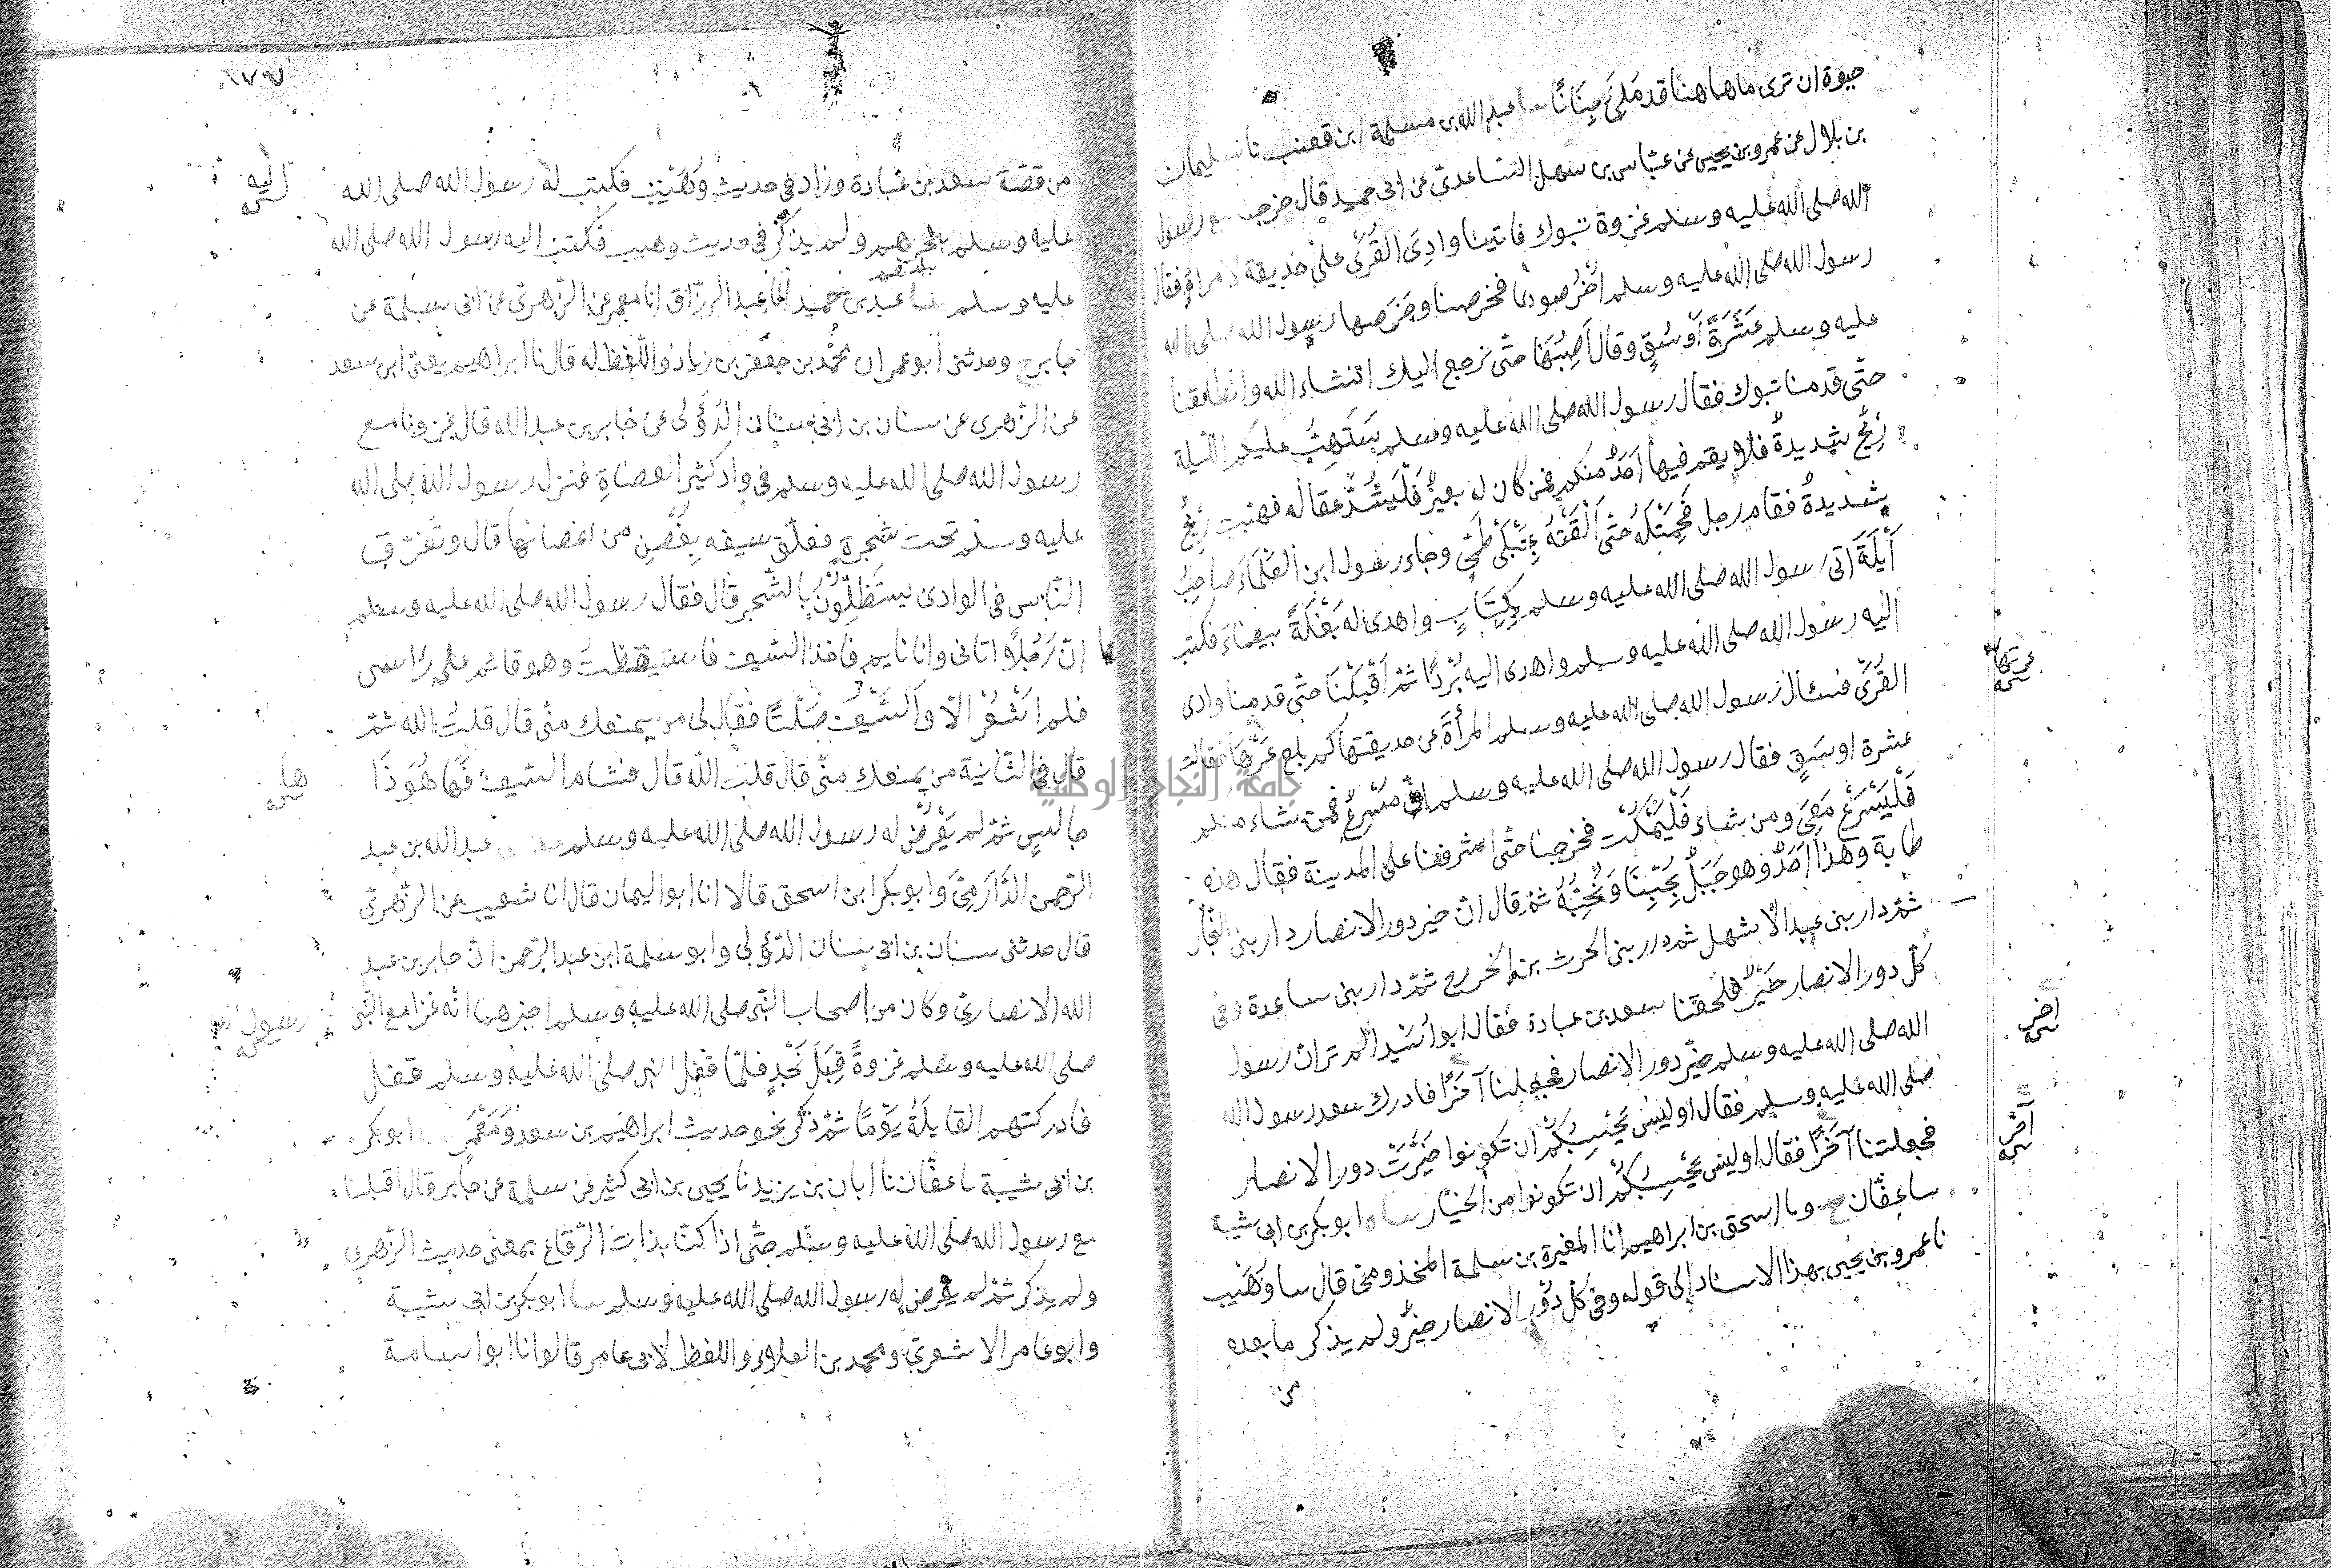 حيوة ان ترى ما هاهنا قد مُلِئَ جِنَانًا عبد الله بن مسلمة ابن قعنب نا سليمان
بن بلال عن عمرو بن يحيى عن عباس بن سهل الساعدى عن ابى حميد قال خرجنا مع رسول
الله صلى الله عليه وسلم غزوة تبوك فاتينا وادِىَ القُرَى على حديقة لامراة فقال
رسول الله صلى الله عليه وسلم اخْرُصوها فخرصنا وخَرَصها رسول الله صلى الله
عليه وسلم عَشَرَةَ اَوْسُقٍ وقال اَحصِيْهَا حتّى نرجع اليك انشاء الله وانطلقنا
حتّى قدمنا تبوك فقال رسول الله صلى الله عليه وسلم سَتَهِبُّ عليكم الليلة
رِيْحٌ شديدةٌ فلا يقم فيها اَحَدٌ منكم فمن كان له بعيرٌ فَلْيَشُدَّ عقاله فهبت رِيْحٌ
شديدةٌ فقام رجل فَحَمَلَتْهُ حتّى اَلْقَتْهُ بِجَبَلَىْ طَىّءٍ وجاء رسول ابن العَلْمَاءِ صاحِبُ
اَيْلَةَ اتى رسول الله صلى الله عليه وسلم بِكِتَابٍ واهدى له بَغْلَةً بيضاء فكتب
اليه رسول الله صلى الله عليه وسلم واهدى اليه بُرْدًا ثم اَقْبَلْنَا حتّى قدمنا وادى
القُرَى فسئال رسول الله صلى الله عليه وسلم المرأةَ عن حديقتها كم بلغ ثمرها فقالت
عشرة اوسق فقال رسول الله صلى الله عليه وسلم انّى مُسْرِعٌ فمن شاء منكم
فَلْيُسْرِعْ مَعِىَ ومن شاء فَلْيَمْكُثْ فخرجنا حتّى اشرفنا على المدينة فقال هذه
طابة وهذا اُحُدٌ وهو جَبَلٌ يُحِبُّنَا وَنُحِبُّهُ ثم قال انّ خير دور الانصار دار بنى النجّار
ثمّ دار بنى عبد الاشهل ثم دار بنى الحرث بن الخزرج ثمّ دار بنى ساعدة وفى
كلّ دور الانصار خَيْرٌ فلحقنا سعد بن عبادة فقال ابو اُسَيْد الم تر انّ رسول
الله صلى الله عليه وسلم خيّر دور الانصار فجعلنا آخَرًا فادرك سعد رسول الله
صلى الله عليه وسلم فقال اوليس بِحَسْبِكُمْ ان تكونوا خَيَّرْتَ دور الانصار
فجعلتنا آخَرًا فقال اوليس بِحَسْبِكُمْ ان تكونوا من الخيار ابو بكر بن ابى شيبة
نا عفّان ح ونا اسحق بن ابراهيم انا المغيرة بن سلمة المخزومى قال نا وُهَيْب
نا عمرو بن يحيى بهذا الاسناد الى قوله وفى كلّ دُوْرِ الانصار خيرٌ ولم يذكر ما بعده
من
آخر
آخر
١٧٧
من قصّة سعد بن عُبادة وزاد فى حديث وُهَيْب فكتب له رسول الله صلى الله
عليه وسلم ببحرهم ولم يذكر فى حديث وهيب فكتب اليه رسول الله صلى الله
عليه وسلم عبد بن حميد انا عبد الرزّاق انا معمر عن الزّهرى عن ابى سلمة عن
جابر ح وحدثنى ابو عمران محمّد بن جعفر بن زياد واللّفظ له قال نا ابراهيم يعنى ابن سعد
عن الزّهرى عن سنان بن ابى سنان الدّؤلى عن جابر بن عبد الله قال غزونا مع
رسول الله صلى الله عليه وسلم فى واد كثير العضاةِ فنزل رسول الله صلى الله
عليه وسلم تحت شجرةٍ فعلّق سيفه بِغُصْنٍ من اغصانها قال وتفرّق
النّاس فى الوادى يستَظِلُّوْنَ بالشّجر قال فقال رسول الله صلى الله عليه وسلم
انّ رَجُلًا اتانى وانا نايم فاخذ السّيف فاستيقظتُ وهو قائم على راسى
فلم اَشْعُرْ الّا والسَّيْفُ صَلْتًا فقال لى من يمنعك منّى قال قلتُ الله ثمّ
قال فى الثّانية من يمنعك منّى قال قلت الله قال فشام السّيفَ فَهَا هُوَ ذَا
جالسٍ ثمّ لم يَعْرِضْ له رسول الله صلى الله عليه وسلم عبد الله بن عبد
الرّحمن الدَّارَمِىّ وابو بكر ابن اسحق قالا انا ابو اليمان قال انا شعيب عن الزّهرىّ
قال حدثنى سنان بن ابى سنان الدّؤلى وابو سلمة ابن عبد الرّحمن انّ جابر بن عبد
الله الانصارىّ وكان من اصحاب النّبى صلى الله عليه وسلم اخبرهما انّه غزا مع النّبى
صلى الله عليه وسلم غزوةً قِبَلَ نَجْدٍ فلمّا قفل النبى صلى الله عليه وسلم قفل
فادركتهم القايلَةُ يَوْمًا ثمّ ذكر نحو حديث ابراهيم بن سعد وَمَعْمَرٍ ابو بكر
بن ابى شيبة نا عفّان نا ابان بن يزيد نا يحيى بن ابى كثير عن سلمة عن جابر قال اقبلنا
مع رسول الله صلى الله عليه وسلم حتّى اذا كنّا بذات الرّقاع بمعنى حديث الزّهرى
ولم يذكر ثمّ لم يعرض له رسول الله صلى الله عليه وسلم ابو بكر بن ابى شيبة
وابو عامر الاشعرىّ ومحمد بن العلاء واللفظ لابى عامر قالوا نا ابو اسامة
اليه
ها
رسول الله
جامعة النجاح الوطنية